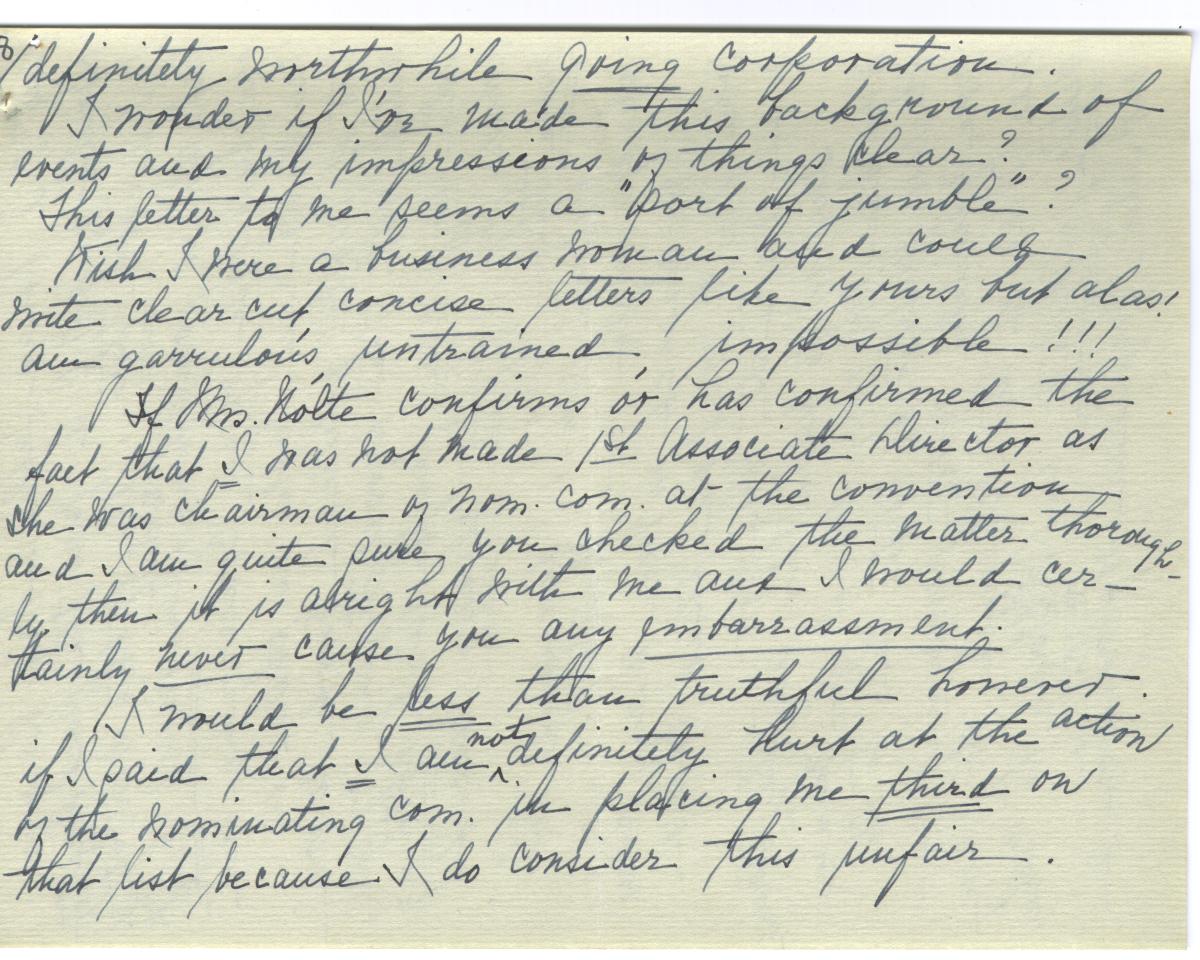 8/ definitely worthwhile going corporation.
I wonder if I've made this background of
events and my impressions of things clear?
This letter to me seems a "sort of jumble"?
Wish I were a business woman and could
write clear cut concise letters like yours but alas!
am garrulous, untrained impossible!!!
If Mrs. Nolte confirms or has confirmed the
fact that I was not made 1st Associate Director as
she was chairman of nom. com. at the convention
and I am quite sure you checked the matter thorough-
ly, then it is alright with me and I would cer-
tainly never cause you any embarrassment.
I would be less than truthful however.
if I said that I am not definitely hurt at the action
of the nominating com. in placing me third on
that list because I do consider this unfair.